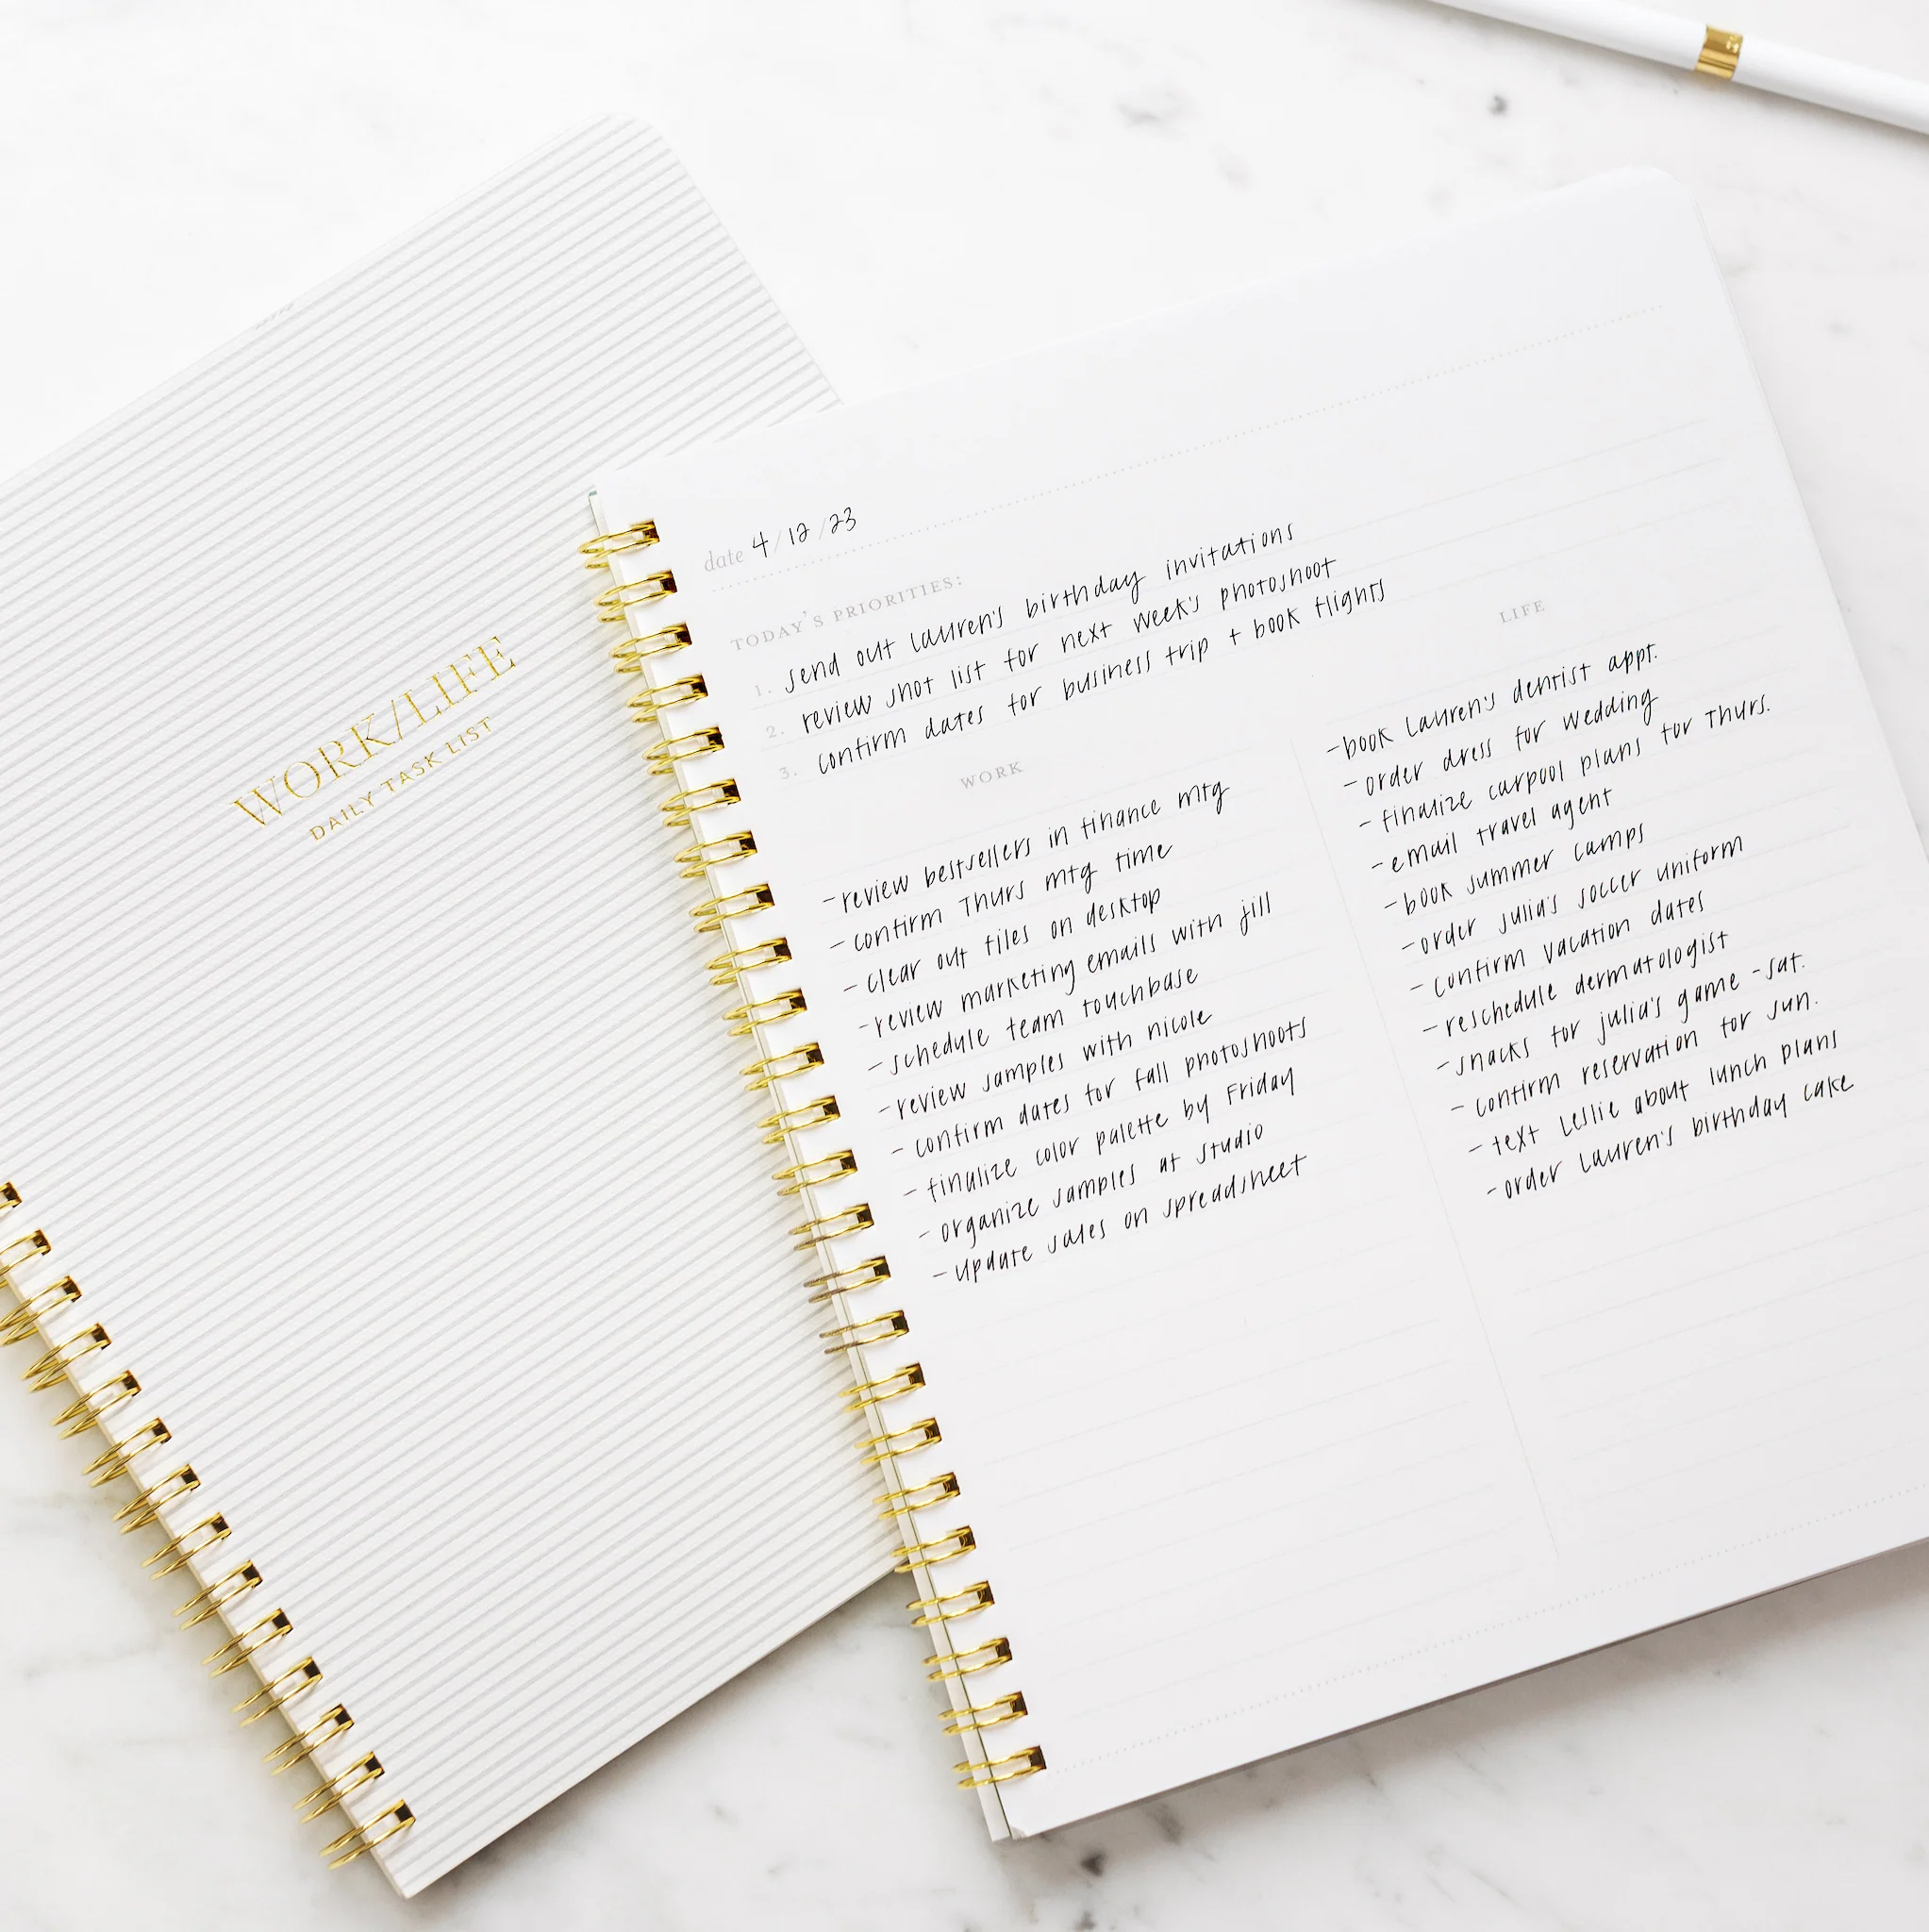 WORK/LIFE
DAILY TASK LIST
date 4/12/23
TODAY'S PRIORITIES:
1. send out lauren's birthday invitations
2. review shot list for next week's photoshoot
3. confirm dates for business trip + book flights
WORK
-review bestsellers in finance mtg
-confirm Thurs mtg time
-clear out files on desktop
-review marketing emails with jill
-schedule team touchbase
-review samples with nicole
-confirm dates for fall photoshoots
-finalize color palette by Friday
-organize samples at studio
-update sales on spreadsheet
LIFE
-book Lauren's dentist appt.
-order dress for wedding
-finalize carpool plans for Thurs.
-email travel agent
-book summer camps
-order julia's soccer uniform
-confirm vacation dates
-reschedule dermatologist
-snacks for julia's game -sat.
-confirm reservation for sun.
-text Leslie about lunch plans
-order Lauren's birthday cake